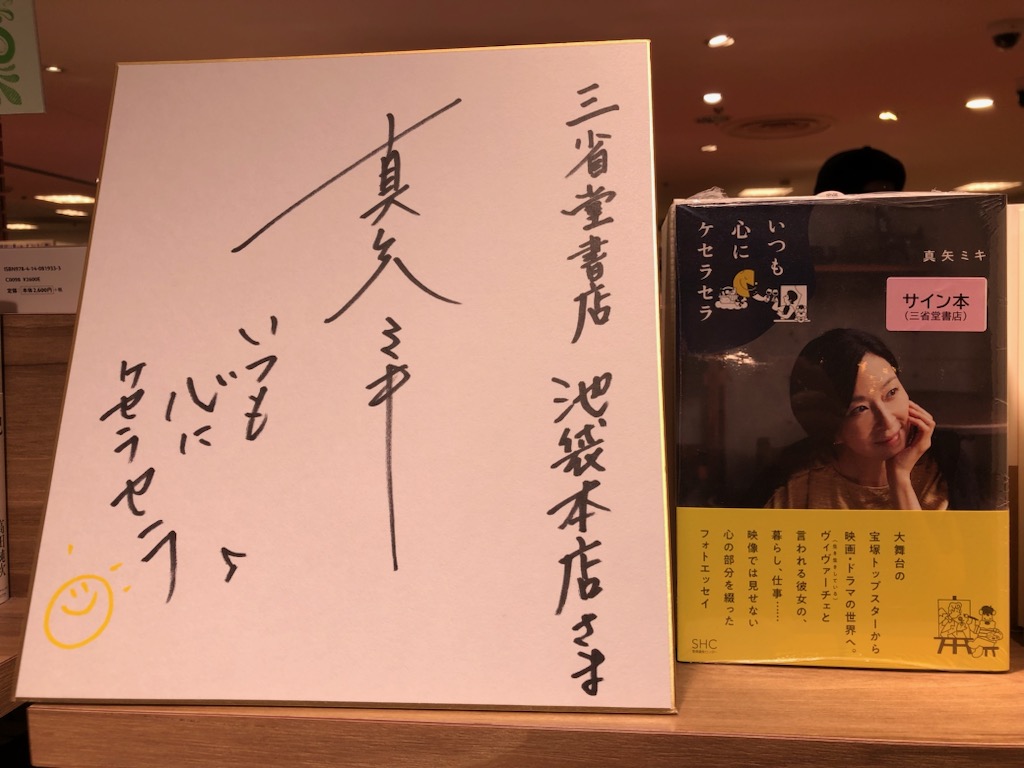 三省堂書店 池袋本店さま
真矢ミキ
いつも
心に
ケセラセラ
いつも
心に
ケセラセラ
真矢ミキ
サイン本
(三省堂書店)
大舞台の
宝塚トップスターから
映画・ドラマの世界へ。
ヴィヴァーチェと
言われる彼女の、
暮らし、仕事……
映像では見せない
心の部分を綴った
フォトエッセイ
SHC
ISBN978-4-14-081955-5